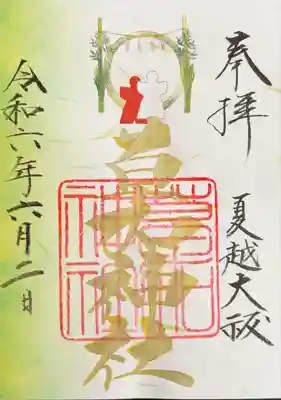 奉拝
夏越大祓
神社
神社
令和六年六月二日